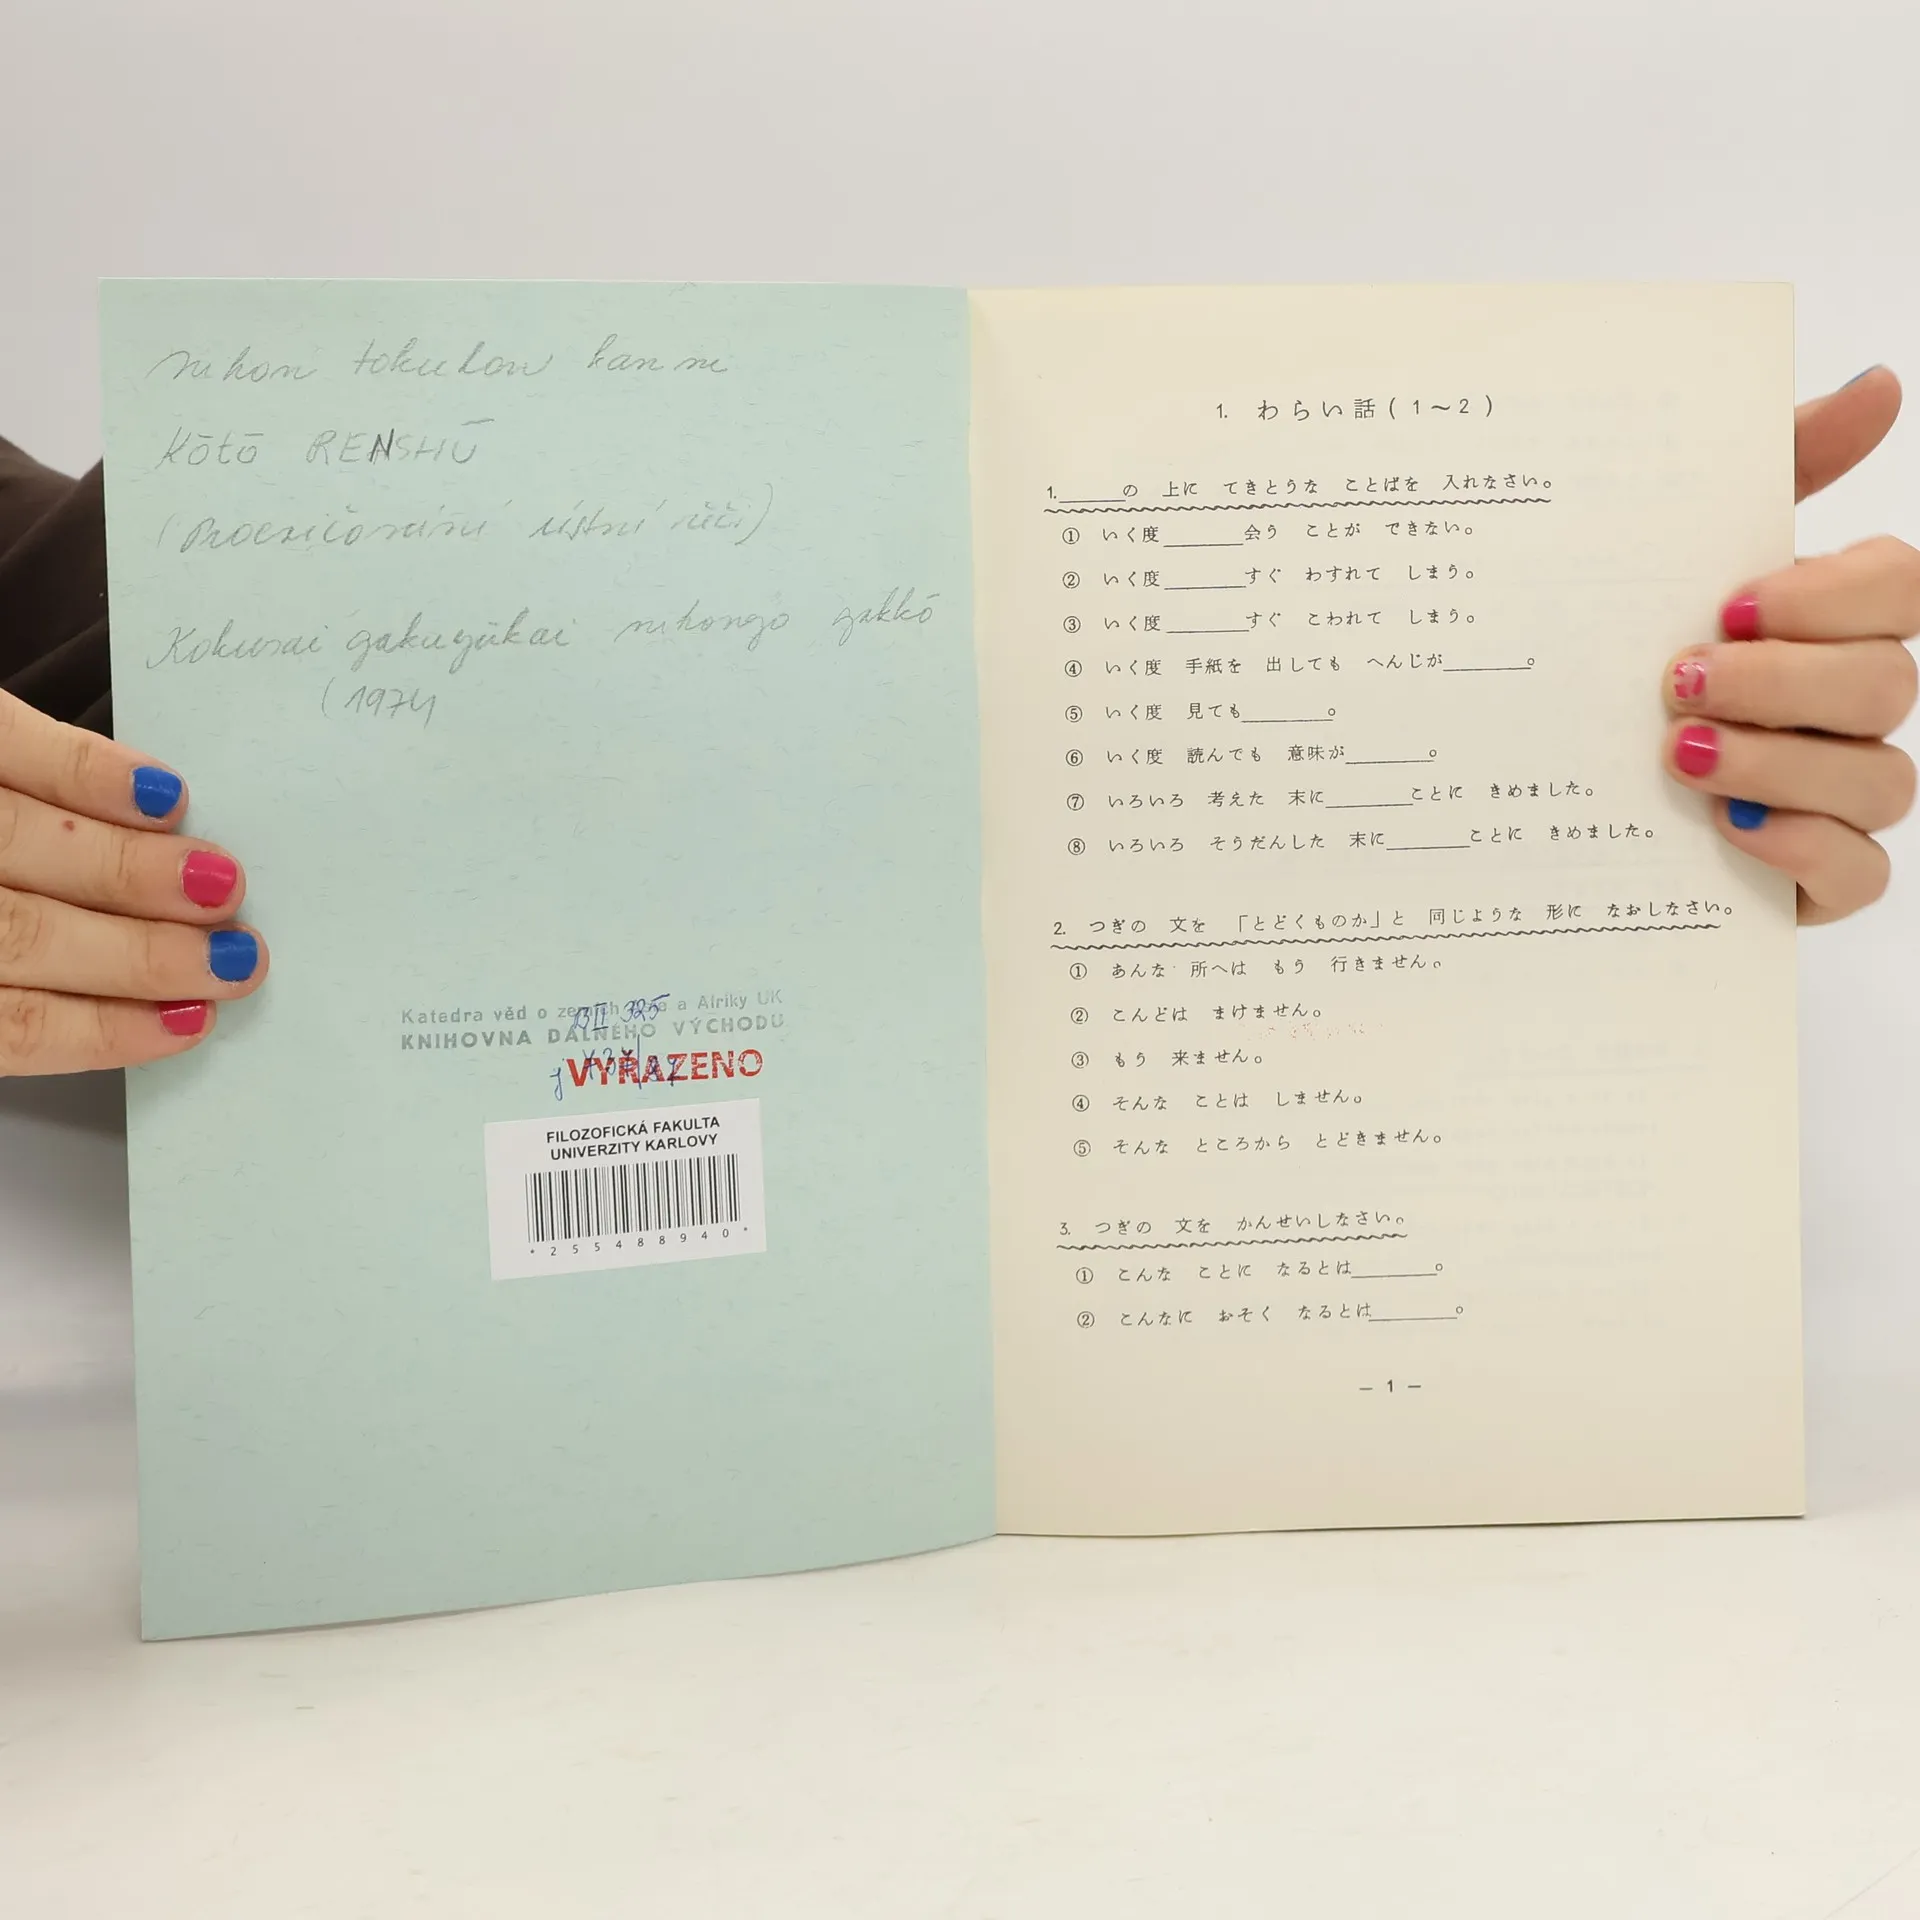 nihon tokuhon kan ni
Kōtō RENSHŪ
(Procvičování ústní řeči)
Kokusai gakuyūkai nihongo gakkō
(1974
Katedra věd o zemích a Afriky UK
BII 325
KNIHOVNA DÁLNÉHO VÝCHODU
VYŘAZENO
FILOZOFICKÁ FAKULTA
UNIVERZITY KARLOVY
* 2 5 5 4 8 8 9 4 0 *
1. わらい話(1～2)
1.______の 上に てきとうな ことばを 入れなさい。
① いく度_______会う ことが できない。
② いく度_______すぐ わすれて しまう。
③ いく度_______すぐ こわれて しまう。
④ いく度 手紙を 出しても へんじが_______。
⑤ いく度 見ても_______。
⑥ いく度 読んでも 意味が_______。
⑦ いろいろ 考えた 末に_______ことに きめました。
⑧ いろいろ そうだんした 末に_______ことに きめました。
2. つぎの 文を 「とどくものか」と 同じような 形に なおしなさい。
① あんな 所へは もう 行きません。
② こんどは まけません。
③ もう 来ません。
④ そんな ことは しません。
⑤ そんな ところから とどきません。
3. つぎの 文を かんせいしなさい。
① こんな ことに なるとは_______。
② こんなに おそく なるとは_______。
— 1 —